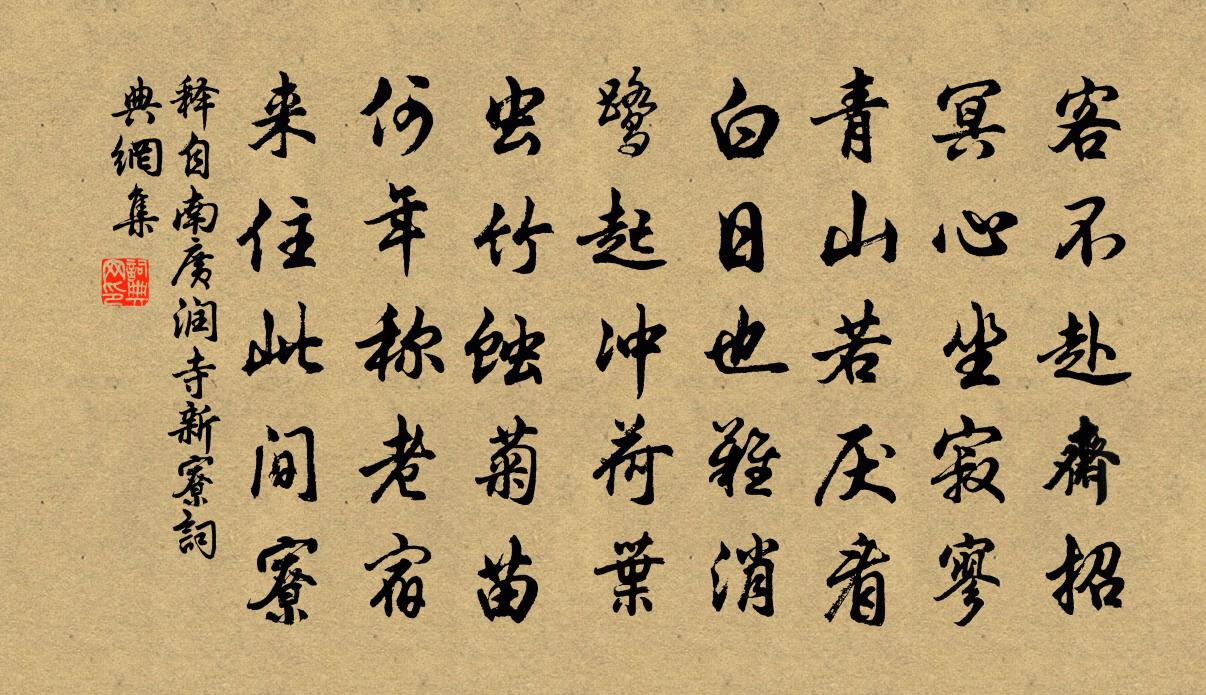 客不赴齋招
冥心坐寂寥
青山若厌看
白日也難消
鹭起冲荷葉
虫竹蚀菊苗
何年称老宿
来住此间寮
释自南廣润寺新寮詞
典網集
詞典
网印